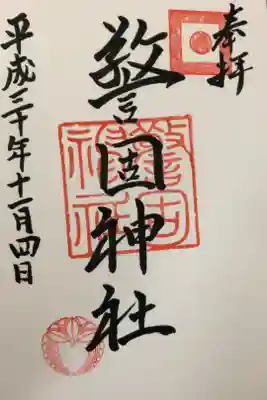 奉拝
警固神社
警固
神社
平成三十年十一月四日